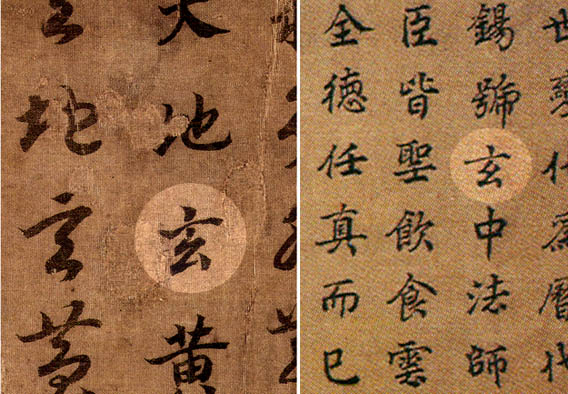 天地玄黄
天地玄黄
錫號玄中法師
臣皆聖飲食雲
全德任真而已